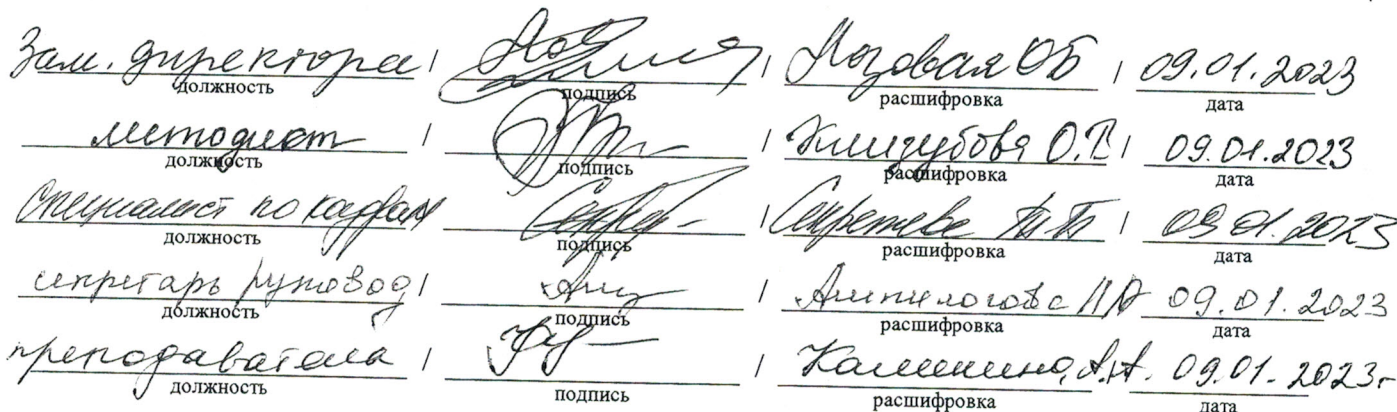 Зам. директора / / Лозовая ОБ / 09.01.2023
должность подпись расшифровка дата
методист / / О.В / 09.01.2023
должность подпись расшифровка дата
специалист по кадрам / 09.01.2023
должность подпись расшифровка дата
секретарь руковод / / Ампилогова 09.01.2023
должность подпись расшифровка дата
преподаватель / Калинина А.А. 09.01.2023г
должность подпись расшифровка дата